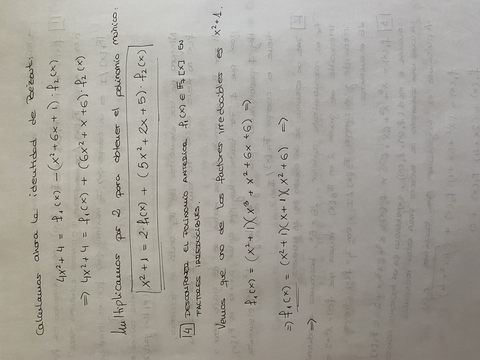 Calculamos ahora la identidad de Bézout:
4x² + 4 = f₁(x) − (x² + 6x + 1) · f₂(x)
⇒ 4x² + 4 = f₁(x) + (6x² + x + 6) · f₂(x)
Multiplicamos por 2 para obtener el polinomio mónico.
x² + 1 = 2 · f₁(x) + (5x² + 2x + 5) · f₂(x)
4 DESCOMPONER EL POLINOMIO ANTERIOR f₁(x) ∈ F₇[x] EN
FACTORES IRREDUCIBLES.
Vemos que uno de los factores irreducibles es x² + 1.
f₁(x) = (x² + 1)(x³ + x² + 6x + 6) ⇒
⇒ f₁(x) = (x² + 1)(x + 1)(x² + 6) ⇒
⇒